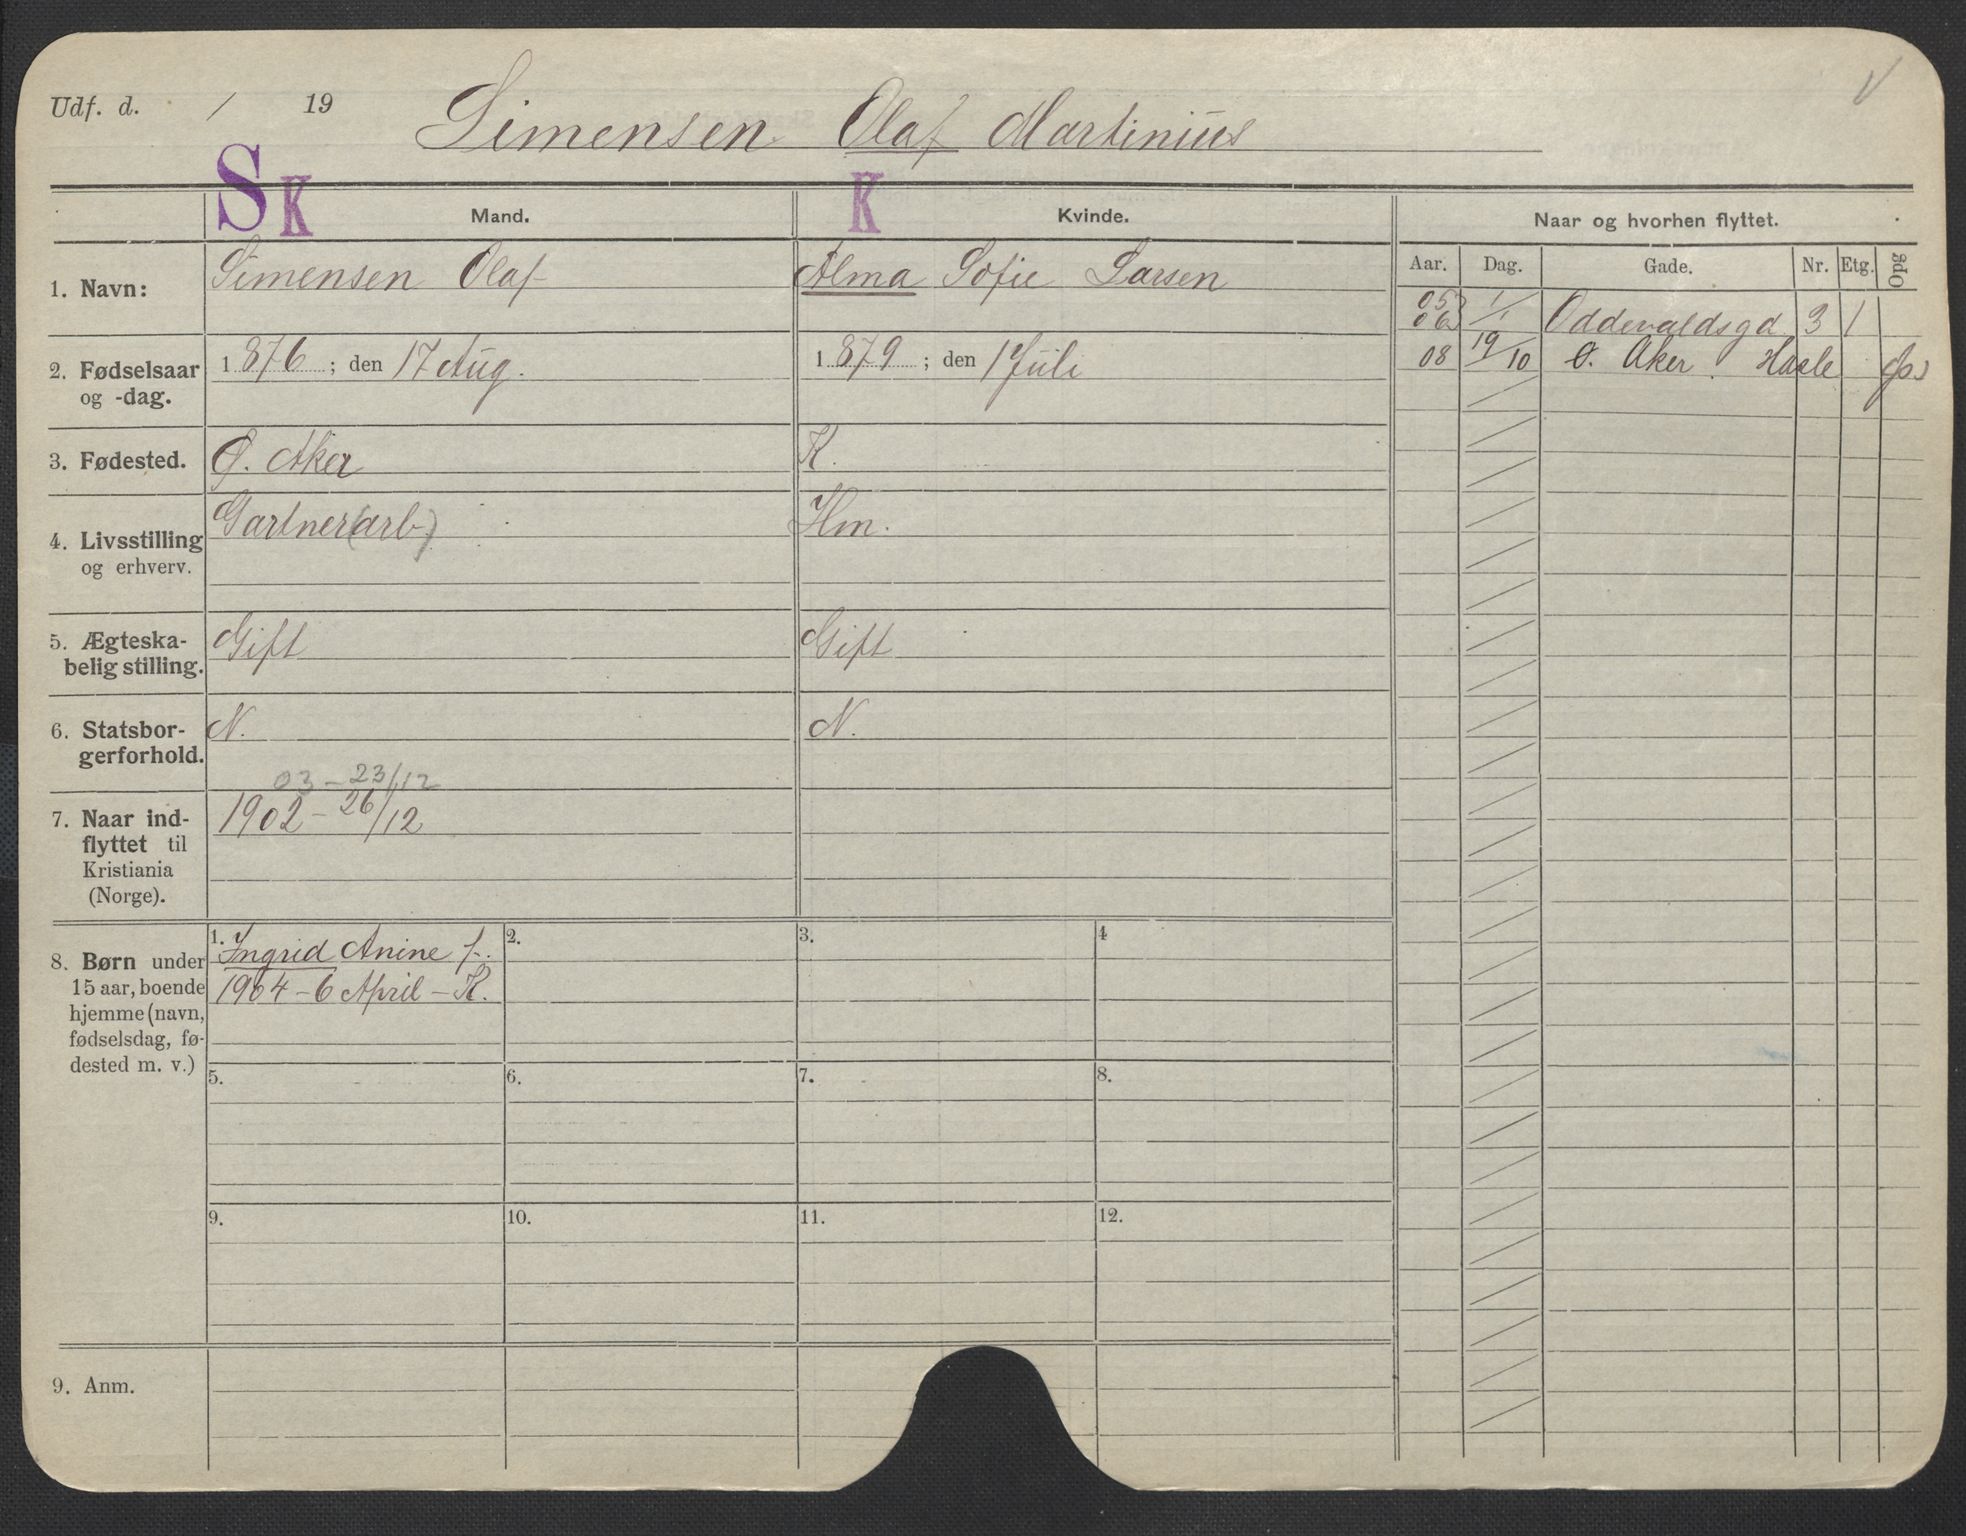 Udf. d. / 19
Simensen Olaf Martinius
S K Mand. K Kvinde. Naar og hvorhen flyttet.
Aar. Dag. Gade. Nr. Etg. Opg
1. Navn: Simensen Olaf Alma Sofie Larsen
05 06 1/1 Oddevaldsgd 3 1
08 19/10 Ø. Aker. Hasle
2. Fødselsaar og -dag. 1876; den 17 Aug. 1879; den 1 Juli
3. Fødested. Ø. Aker K.
4. Livsstilling og erhverv. Gartner(arb) Hm.
5. Ægteska-
belig stilling. Gift Gift
6. Statsbor-
gerforhold. N. N.
03 - 23/12
7. Naar ind-
flyttet til
Kristiania
(Norge). 1902 - 26/12
8. Børn under
15 aar, boende
hjemme (navn,
fødselsdag, fø-
dested m. v.)
1. Ingrid Anine f.
1904 - 6 April - K.
2. 3. 4
5. 6. 7. 8.
9. 10. 11. 12.
9. Anm.